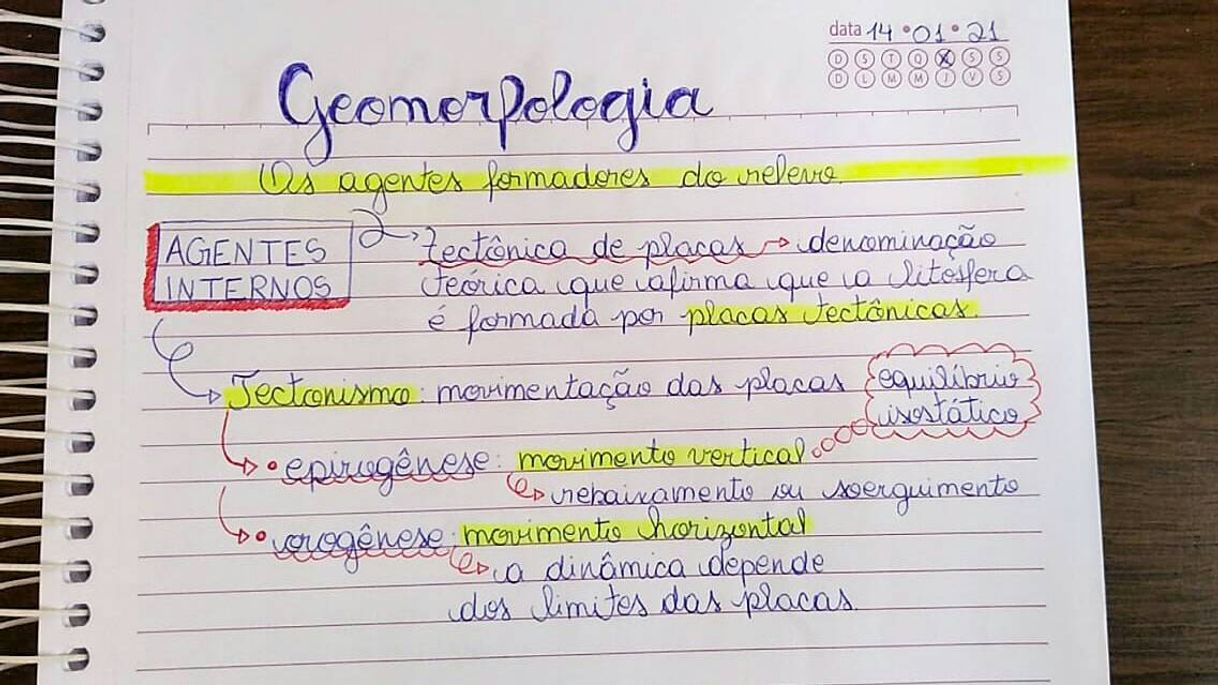 data 14 • 01 • 21
D S T Q X S S
D L M M J V S
Geomorfologia
Os agentes formadores do relevo.
AGENTES
INTERNOS
tectônica de placas → denominação
teórica que afirma que a litosfera
é formada por placas tectônicas.
Tectonismo: movimentação das placas
equilíbrio
isostático
• epirogênese: movimento vertical
rebaixamento ou soerguimento
• orogênese: movimento horizontal
a dinâmica depende
dos limites das placas.